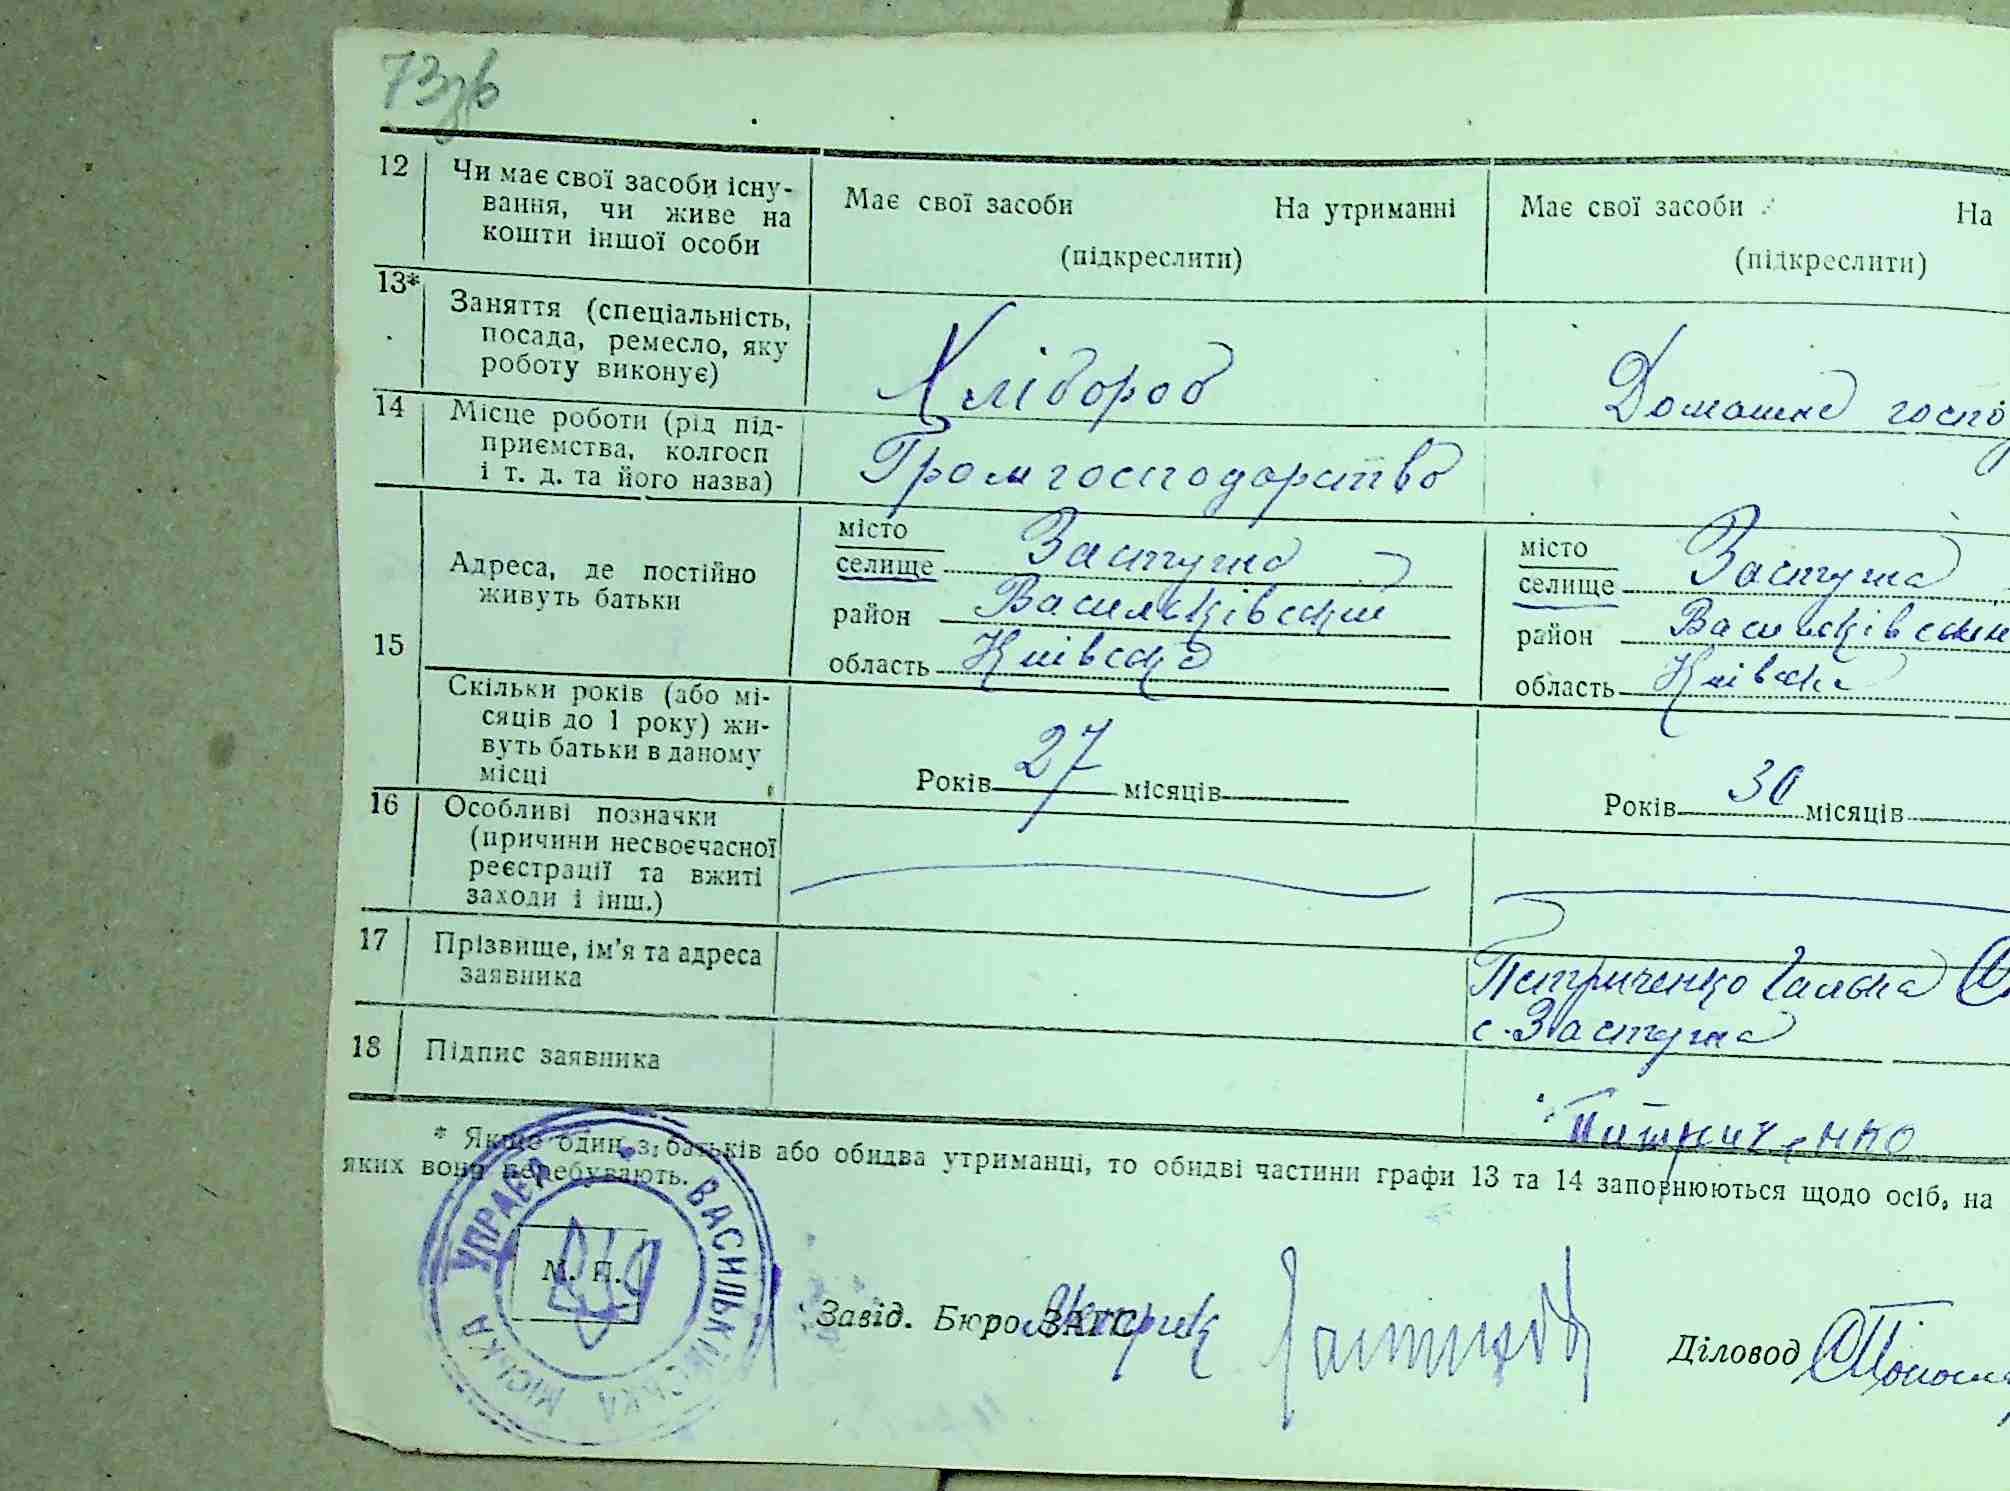 73зв
12 Чи має свої засоби існу-
вання, чи живе на
кошти іншої особи
Має свої засоби На утриманні
(підкреслити)
Має свої засоби На
(підкреслити)
13* Заняття (спеціальність,
посада, ремесло, яку
роботу виконує)
Хлібороб
Домашнє госпо
14 Місце роботи (рід під-
приємства, колгосп
і т. д. та його назва)
Громгосподарство
15 Адреса, де постійно
живуть батьки
місто
селище Застугна
район Васильківський
область Київська
місто
селище Застугна
район Васильківський
область Київська
Скільки років (або мі-
сяців до 1 року) жи-
вуть батьки в даному
місці
Років 27 місяців
Років 30 місяців
16 Особливі позначки
(причини несвоєчасної
реєстрації та вжиті
заходи і інш.)
17 Прізвище, ім'я та адреса
заявника
Петриченко Галина
с. Застугна
18 Підпис заявника
Питриченко
* Якщо один з батьків або обидва утриманці, то обидві частини графи 13 та 14 заповнюються щодо осіб, на
яких вони перебувають.
ВАСИЛЬКІВСЬКА МІСЬКА УПРАВА
М. П.
Завід. Бюро ЗАГС
Діловод